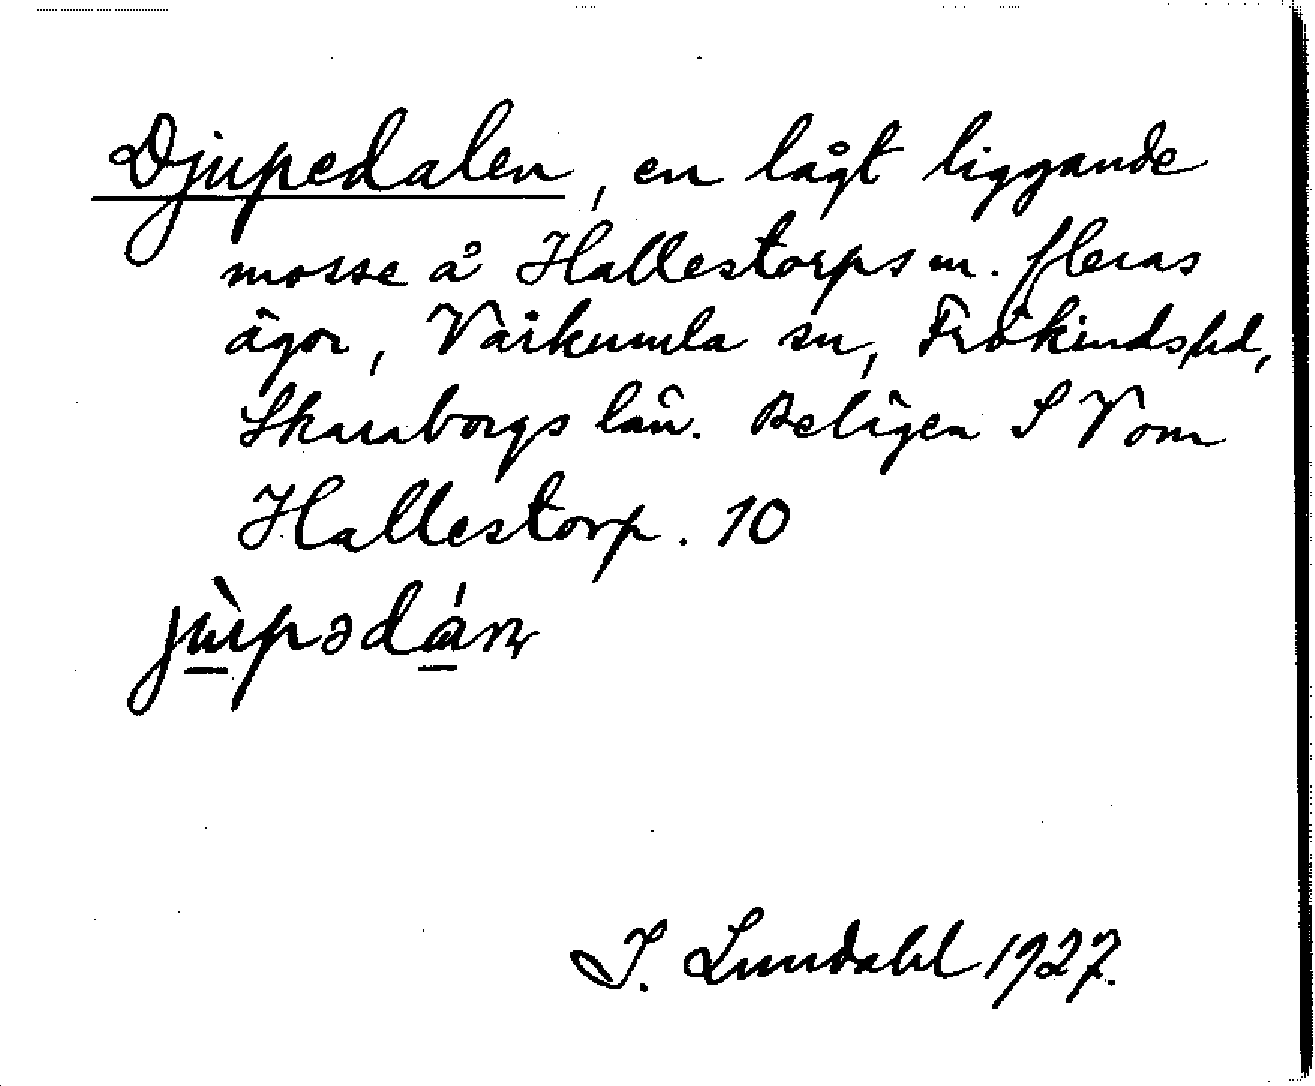 Djupedalen, en lågt liggande
mosse å Hallestorps m. fleras
ägor, Vårkumla sn, Frökinds hd,
Skaraborgs län. Belägen S V om
Hallestorp. 10
I. Lundahl 1927.